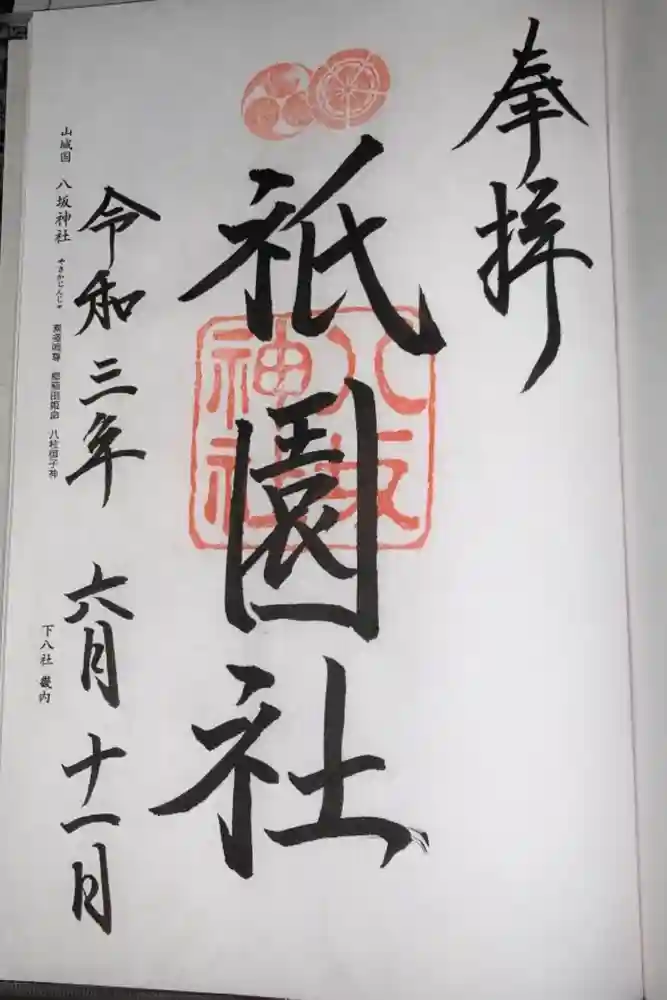 奉拝
祇園社
八坂
神社
令和三年 六月十一日
山城国 八坂神社 やさかじんじゃ 素戔嗚尊 櫛稲田姫命 八柱御子神
下八社 畿内